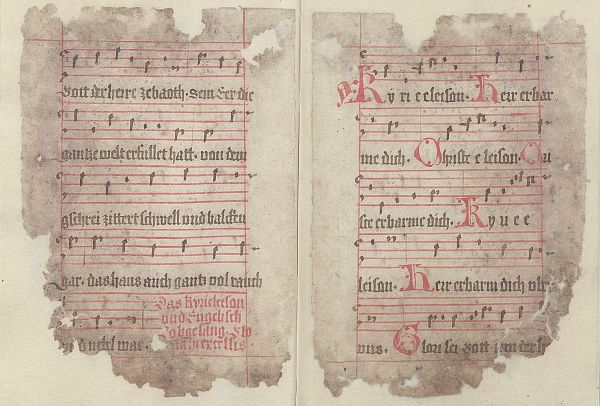 Gott der herre zebaoth. Sein Eer die
gantze welt erfüllet hatt. von dem
gschrei zittert schwell vnd balcken
gar. das haus auch gantz vol rauch
vnd nebel war. Das Kyrieleison
vnd Engelisch
Lobgesang.
Kyri e eleison. Herr erbar
me dich. Christe eleison. Chri
ste erbarme dich. Kyri e e
leison. Herr erbarm dich vber
vns. Glori sei Gott inn der h